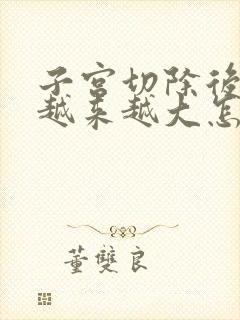 子宫切除後
越来越大怎
董雙良